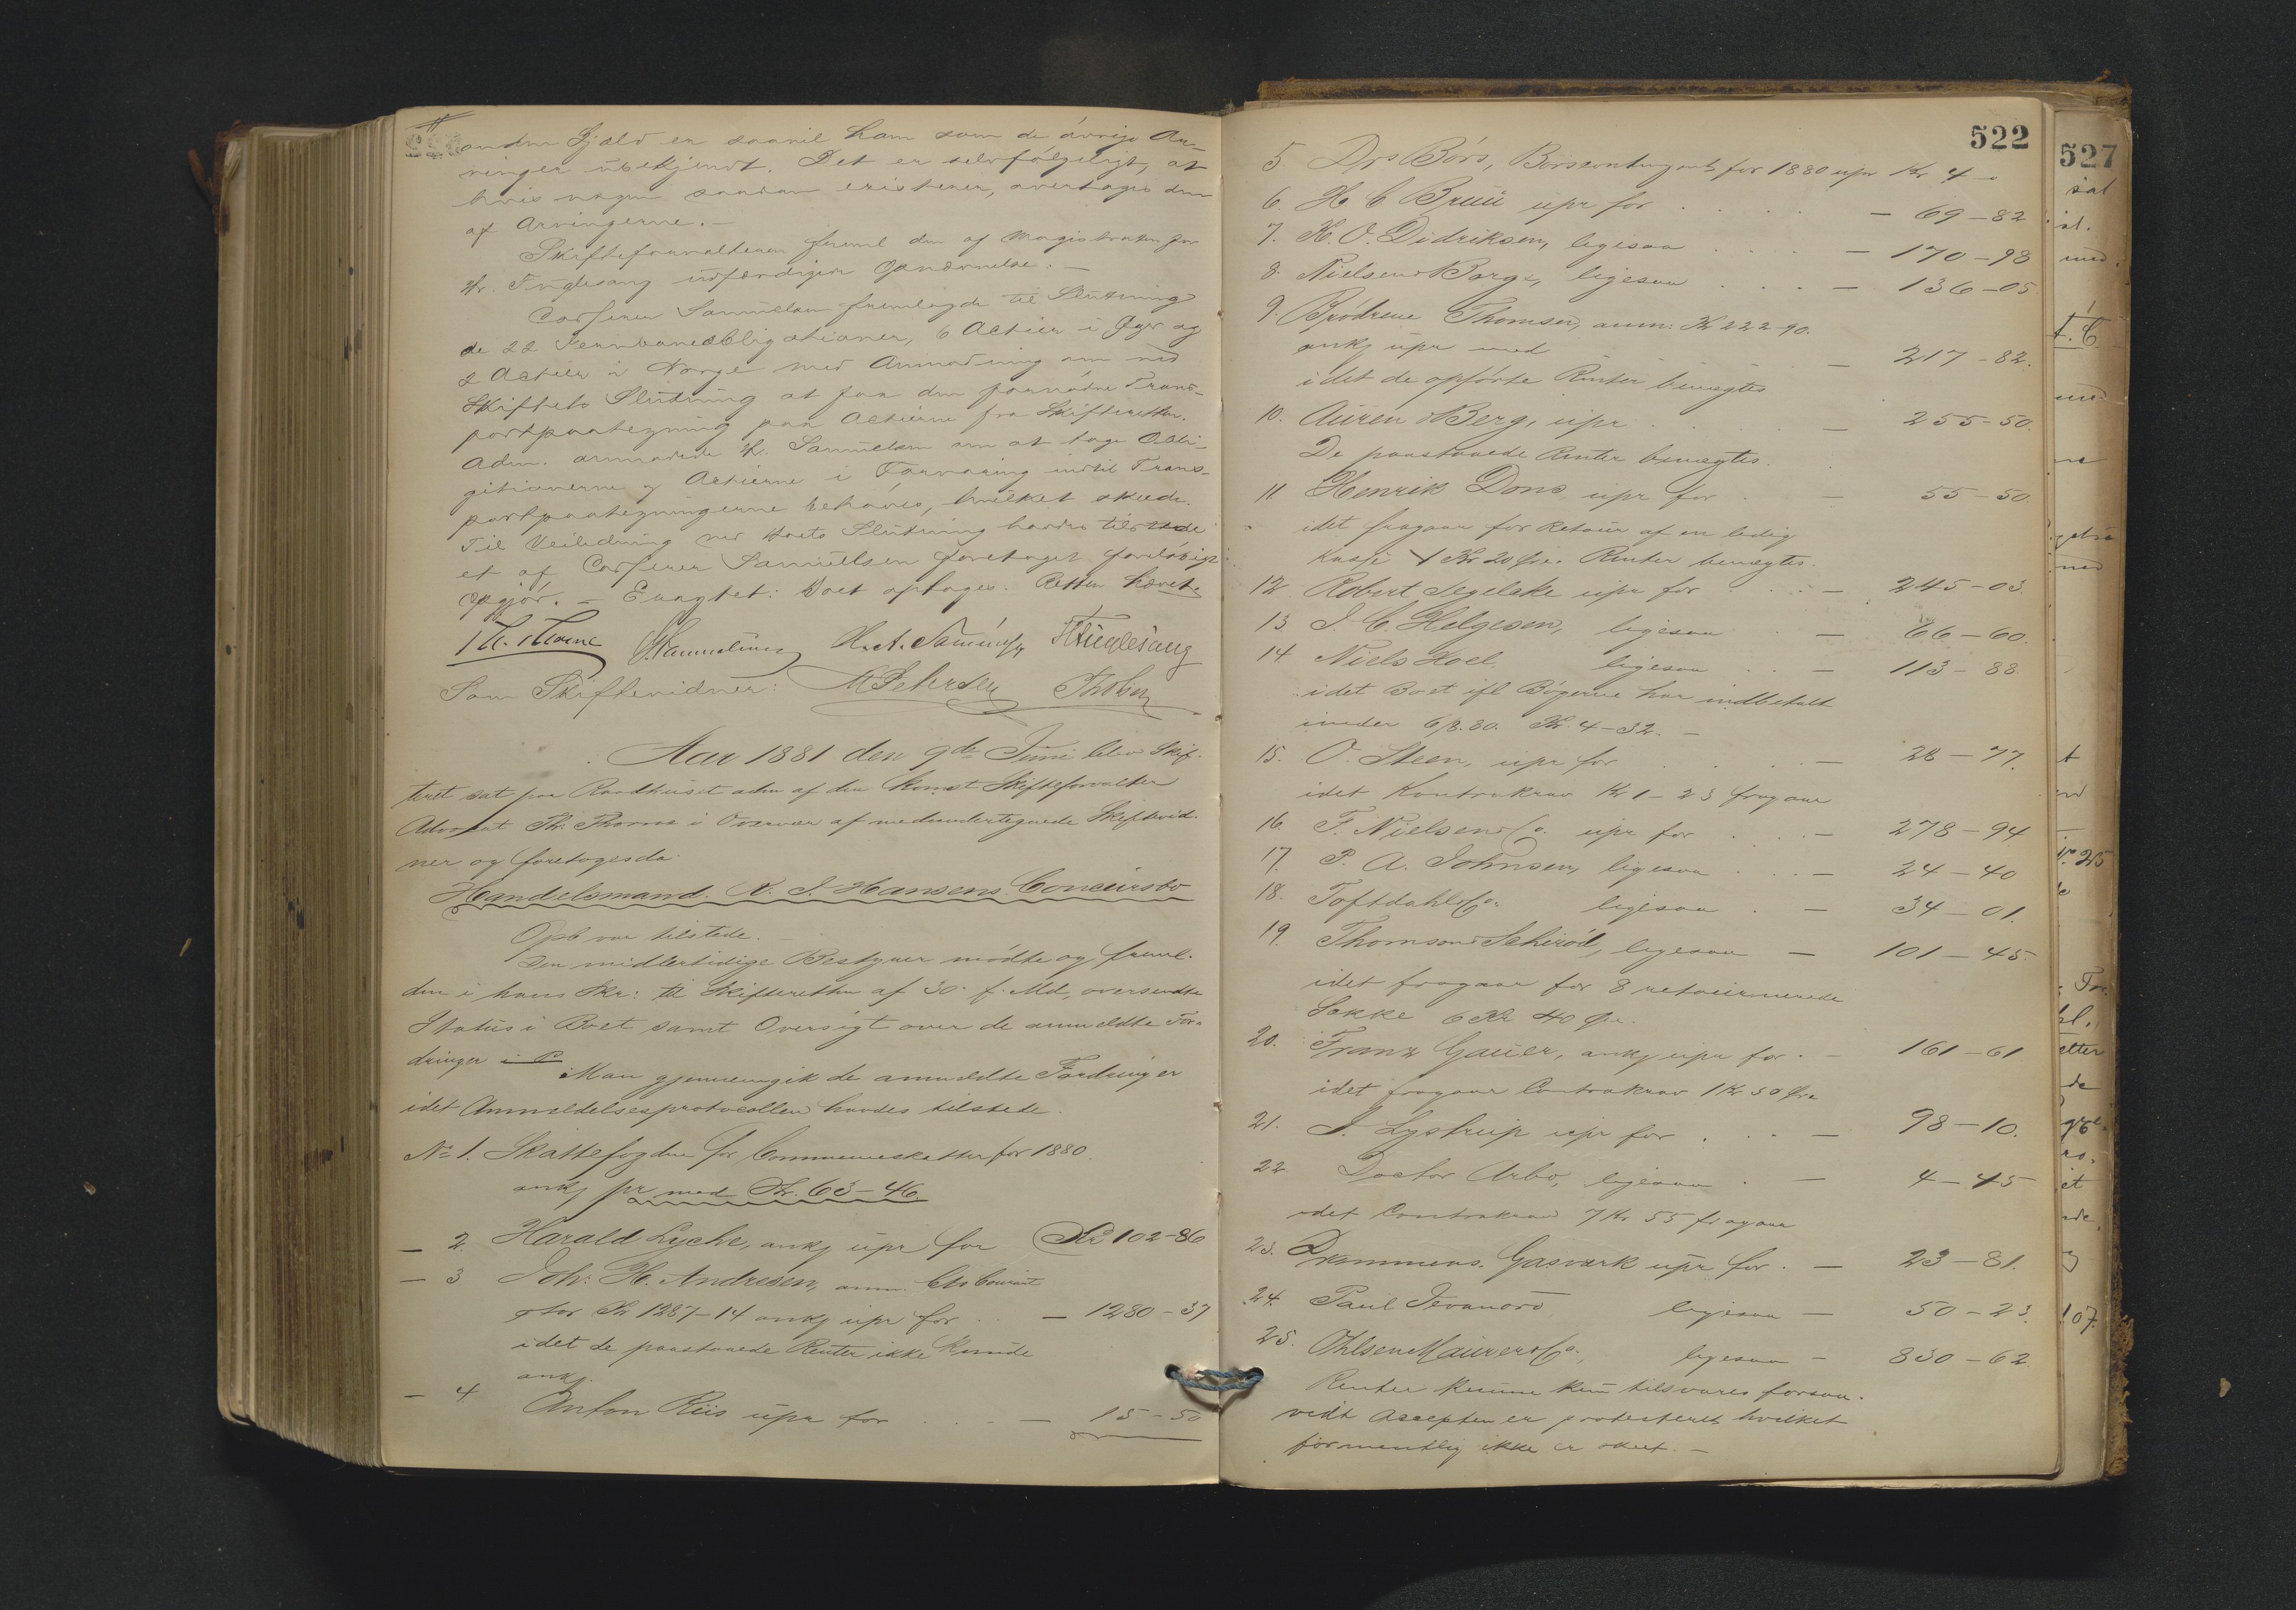 anden Gjæld er saavel ham som de övrige Ar-
vinger ubekjendt. Det er selvfölgeligt, at
hvis nogen saadan existerer, overtages den
af Arvingerne. —
Skifteforvalteren freml den af Magistraten for
Hr. Fuglesang udfærdigede Opnævnelse. —
Samuelsen fremlagde til Slutning
de 22 Jernbaneobligationer, 6 Actier i og
2 Actier i Norge med Anmodning om ved
Skiftets Slutning at faa den fornödne Trans-
portpaategning paa Actierne fra Skifteretten.
Adm. anmodede Hr. Samuelsen om at tage Obli-
gationerne og Actierne i Forvaring indtil Trans-
portpaategningerne behöves, hvilket skede.
Til Veiledning ved Boets Slutning havdes tilstede
et af Samuelsen foretaget forelöbigt
Opgjör. — Eragtet: Boet optages. Retten hævet.
Th. Thorne Samuelsen H. A. Samuelsen Fuglesang
Som Skiftevidner: M Pedersen
Aar 1881 den 9de Juni blev Skif-
teret sat paa Raadhuset adm af den konst Skifteforvalter
Advokat Th: Thorne i Overvær af medundertegnede Skiftevid-
ner og foretoges da
Handelsmand N. J. Hansens Concursbo
Opb var tilstede. —
Den midlertidige Bestyrer mödte og freml.
den i hans Skr: til Skifteretten af 30. f. Md. oversendte
Status i Boet samt Oversigt over de anmeldte For-
dringer
Man gjennemgik de anmeldte Fordringer
idet Anmeldelsesprotocollen havdes tilstede.
No 1. Skattefogden for Communeskatter for 1880
ankj pr med Kr. 63-46
— 2 Harald Lyche, ankj upr for Kr 102-86
— 3 Joh: H. Andresen, anm. Cto Courant
stor Kr 1287-14 ankj upr for . . — 1280-37
idet de paastaaede Renter ikke kunde
ankj.
— 4. Anton Riis upr for . . . — 15-50
522
5. Drs Börs, Börscontingent for 1880 upr Kr 4 -
6. H C Bruu upr for . . . — 69-82
7. K. O. Didriksen, ligesaa . . . — 170-98
8. Nielsen & Borge, ligesaa . . . — 136-05
9. Brödrene Thomsen, anm: Kr 222-90.
ankj upr med . . . — 217-82.
idet de opförte Renter benægtes
10. Auren & Berg, upr . . . — 255-50.
De paastaaede Renter benægtes.
11 Henrik Dons upr for . — 55-50.
idet fragaar for Retour af en ledig
Kasse 1 Kr 20 Öre. Renter benægtes.
12 Robert Segelcke upr for . . . — 245-03
13 J. C. Helgesen, ligesaa . — 66-60.
14 Niels Hoel ligesaa . . — 113-88
idet Boet ifl Bögerne har indbetalt
under 6/8.80. Kr. 4-32. —
15. O. Steen, upr for . . . — 28-77.
idet Kontrakrav Kr 1-23 fragaar
16. F. Nielsen & Co. upr for . . . — 278-94
17. P. A. Johnsen, ligesaa . . — 24-40
18. Toftdahl & Co. ligesaa . — 34-01.
19. Thomson & Schiöd, ligesaa — 101-45.
idet fragaar for 8 retournerede
Sække 6 Kr 40 Öre.
20. Franz Gauer, ankj upr for . — 161-61
idet fragaar Contrakrav 1 Kr 50 Öre
21. J. Lystrup upr for . . . — 98-10.
22 Doctor Arbo, ligesaa . — 4-45
idet Contrakrav 7 Kr 55 fragaar
23. Drammens Gasværk upr for . — 23-81.
24. Paul ligesaa — 50-23.
25. Ohlsen Maurer & Co., ligesaa — 830-62.
Renter kunne kun tilsvares forsaa-
vidt Accepten er protesteret, hvilket
formentlig ikke er skeet. —
527